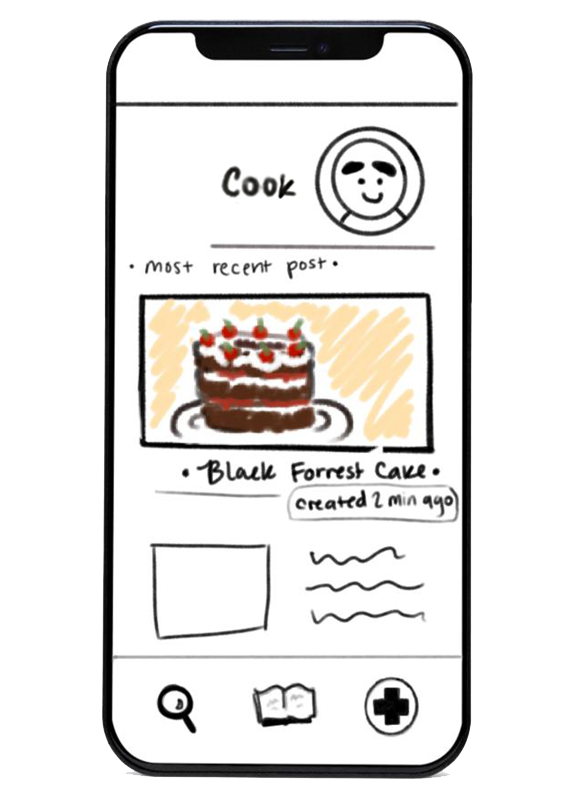 Cook
• most recent post •
• Black Forrest Cake •
created 2 min ago